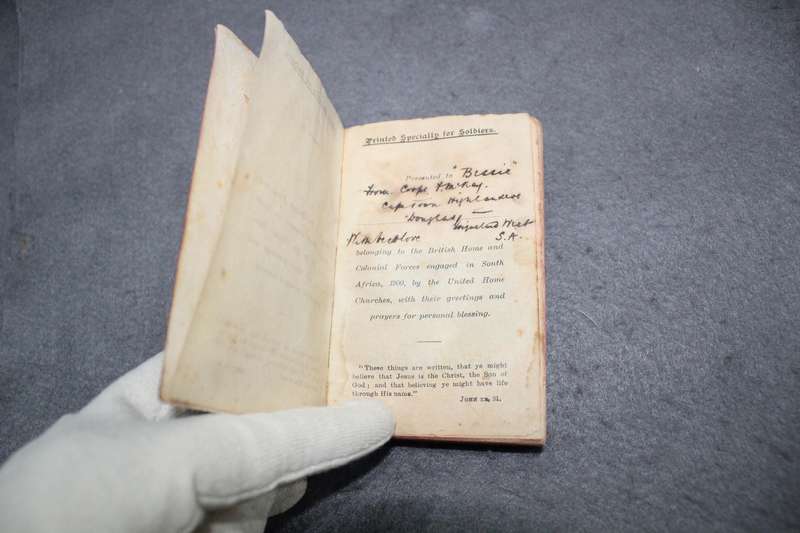 Printed Specially for Soldiers.
Presented to "Bessie"
From Corpl McKay.
Cape Town Highlanders
Douglas —
Griqualand West
With best love S.A.
belonging to the British Home and
Colonial Forces engaged in South
Africa, 1900, by the United Home
Churches, with their greetings and
prayers for personal blessing.
"These things are written, that ye might
believe that Jesus is the Christ, the Son of
God; and that believing ye might have life
through His name."
JOHN xx, 31.